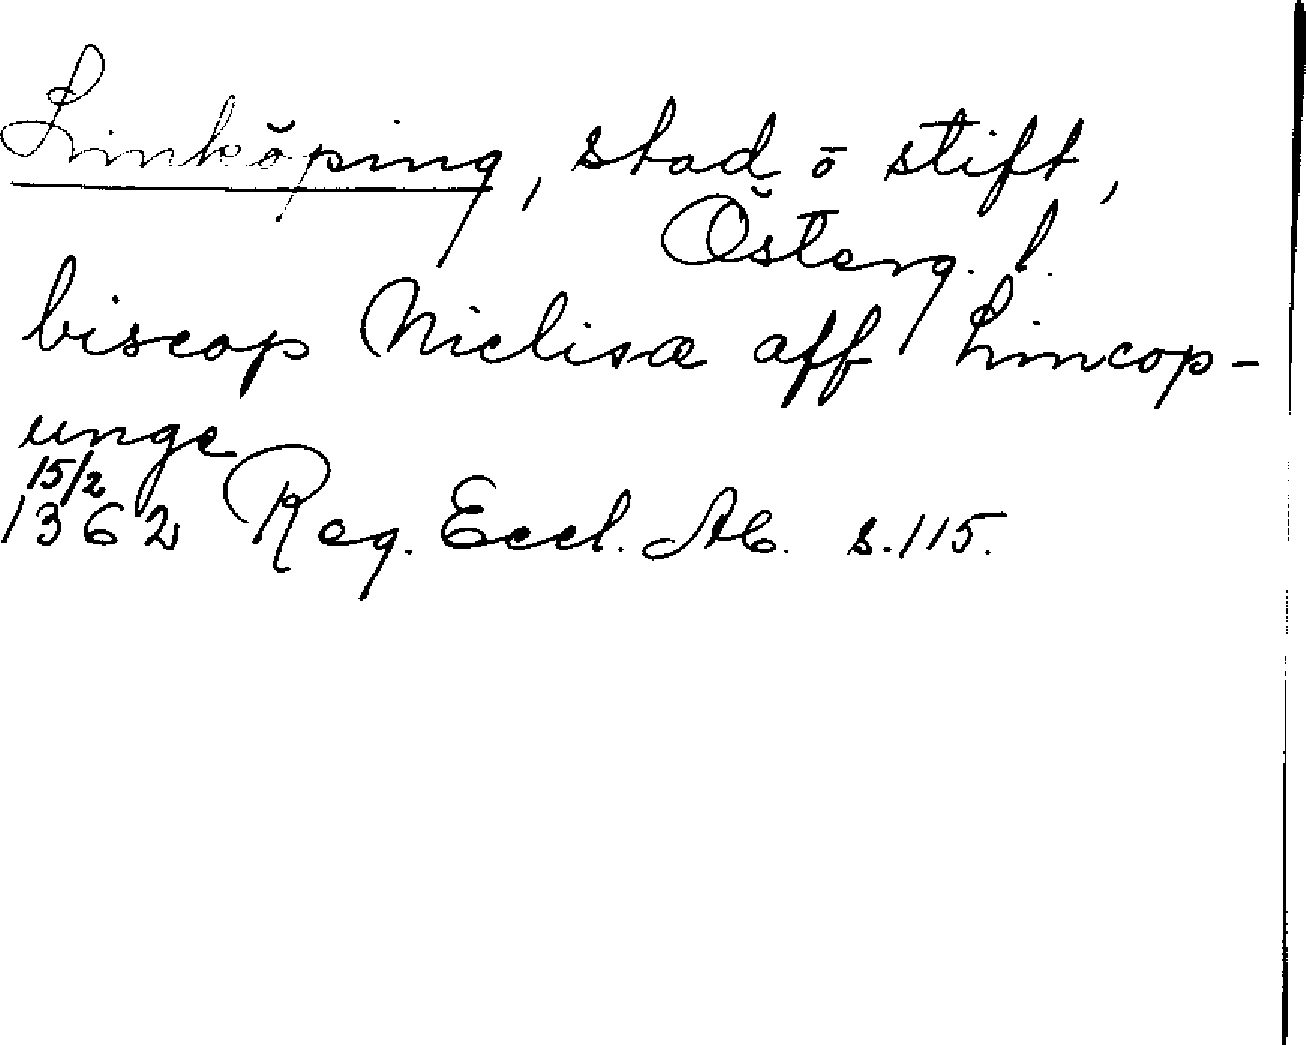 Linköping, stad ō stift,
Österg. l.
biscop Niclisæ aff Lincop-
unge
15/2
1362 Reg. Eccl. Ab. s. 115.